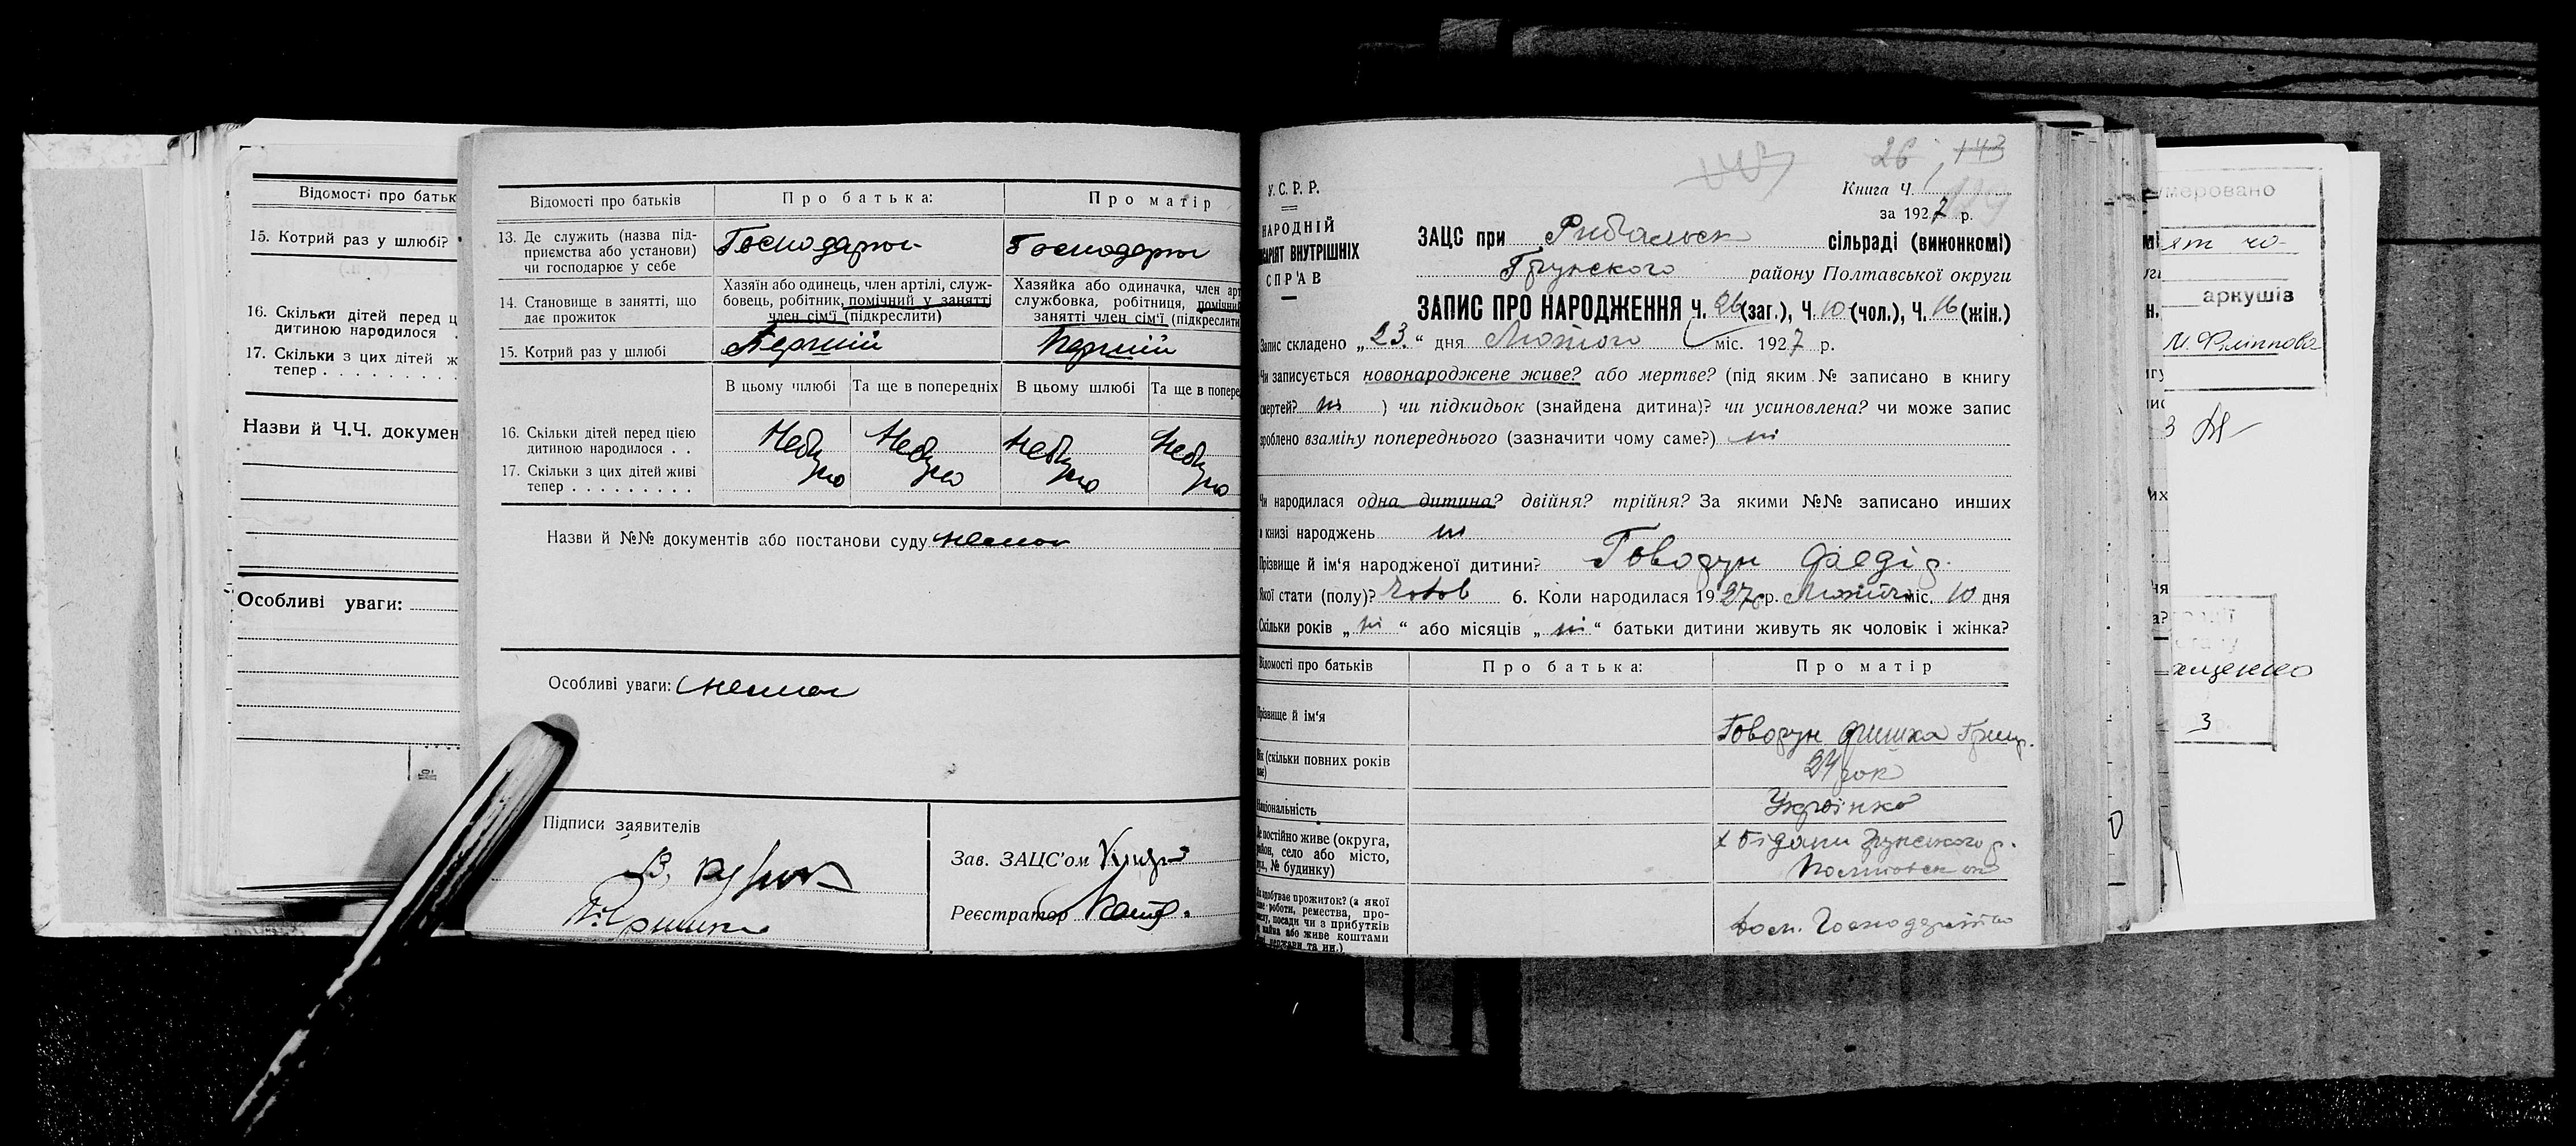 Відомості про батьк
15. Котрий раз у шлюбі?
16. Скільки дітей перед ц
дитиною народилося
17. Скільки з цих дітей ж
тепер . . . . . . . . .
Назви й Ч.Ч. докумен
Особливі уваги:
Відомості про батьків
Про батька:
Про матір
13. Де служить (назва під-
приємства або установи)
чи господарює у себе
Господарює
Господарює
14. Становище в занятті, що
дає прожиток
Хазяїн або одинець, член артілі, служ-
бовець, робітник, помічний у занятті
член сім'ї (підкреслити)
Хазяйка або одиначка, член арт
службовка, робітниця, помічни
занятті член сім'ї (підкреслити
15. Котрий раз у шлюбі
Перший
Перший
В цьому шлюбі
Та ще в попередніх
В цьому шлюбі
Та ще в попере
16. Скільки дітей перед цією
дитиною народилося . .
17. Скільки з цих дітей живі
тепер . . . . . . . . .
Небуло
Небуло
Небуло
Небуло
Назви й №№ документів або постанови суду немає
Особливі уваги: немає
Підписи заявителів
Зав. ЗАЦС'ом
Реєстратор
У.С.Р.Р.
НАРОДНІЙ
САРІЯТ ВНУТРІШНІХ
СПРАВ
26 143
Книга Ч.
за 1927 р.
ЗАЦС при Рибальськ сільраді (виконкомі)
Грунського району Полтавської округи
ЗАПИС ПРО НАРОДЖЕННЯ Ч. 26 (заг.), Ч. 10 (чол.), Ч. 16 (жін.)
Запис складено „23." дня Лютого міс. 1927 р.
Чи записується новонароджене живе? або мертве? (під яким № записано в книгу
смертей? ні ) чи підкидьок (знайдена дитина)? чи усиновлена? чи може запис
зроблено взаміну попереднього (зазначити чому саме?) ні
Чи народилася одна дитина? двійня? трійня? За якими №№ записано инших
в книзі народжень ні
Прізвище й ім'я народженої дитини? Говорун Федір
Якої стати (полу)? Чолов 6. Коли народилася 1927 р. Лютого міс. 10 дня
Скільки років „ ні " або місяців „ ні " батьки дитини живуть як чоловік і жінка?
Відомості про батьків
Про батька:
Про матір
Прізвище й ім'я
Говорун Гриц.
Вік (скільки повних років
має)
24 рок
Національність
Українка
Де постійно живе (округа,
район, село або місто,
вул., № будинку)
х Бідани Грунського р.
Полтавськ ок
Як здобуває прожиток? (з якої
роботи, ремества, про-
мислу, посади чи з прибутків
майна або живе коштами
держави та ин.)
Госнодарство
умеровано
аркушів
М. Філіппова
3
3